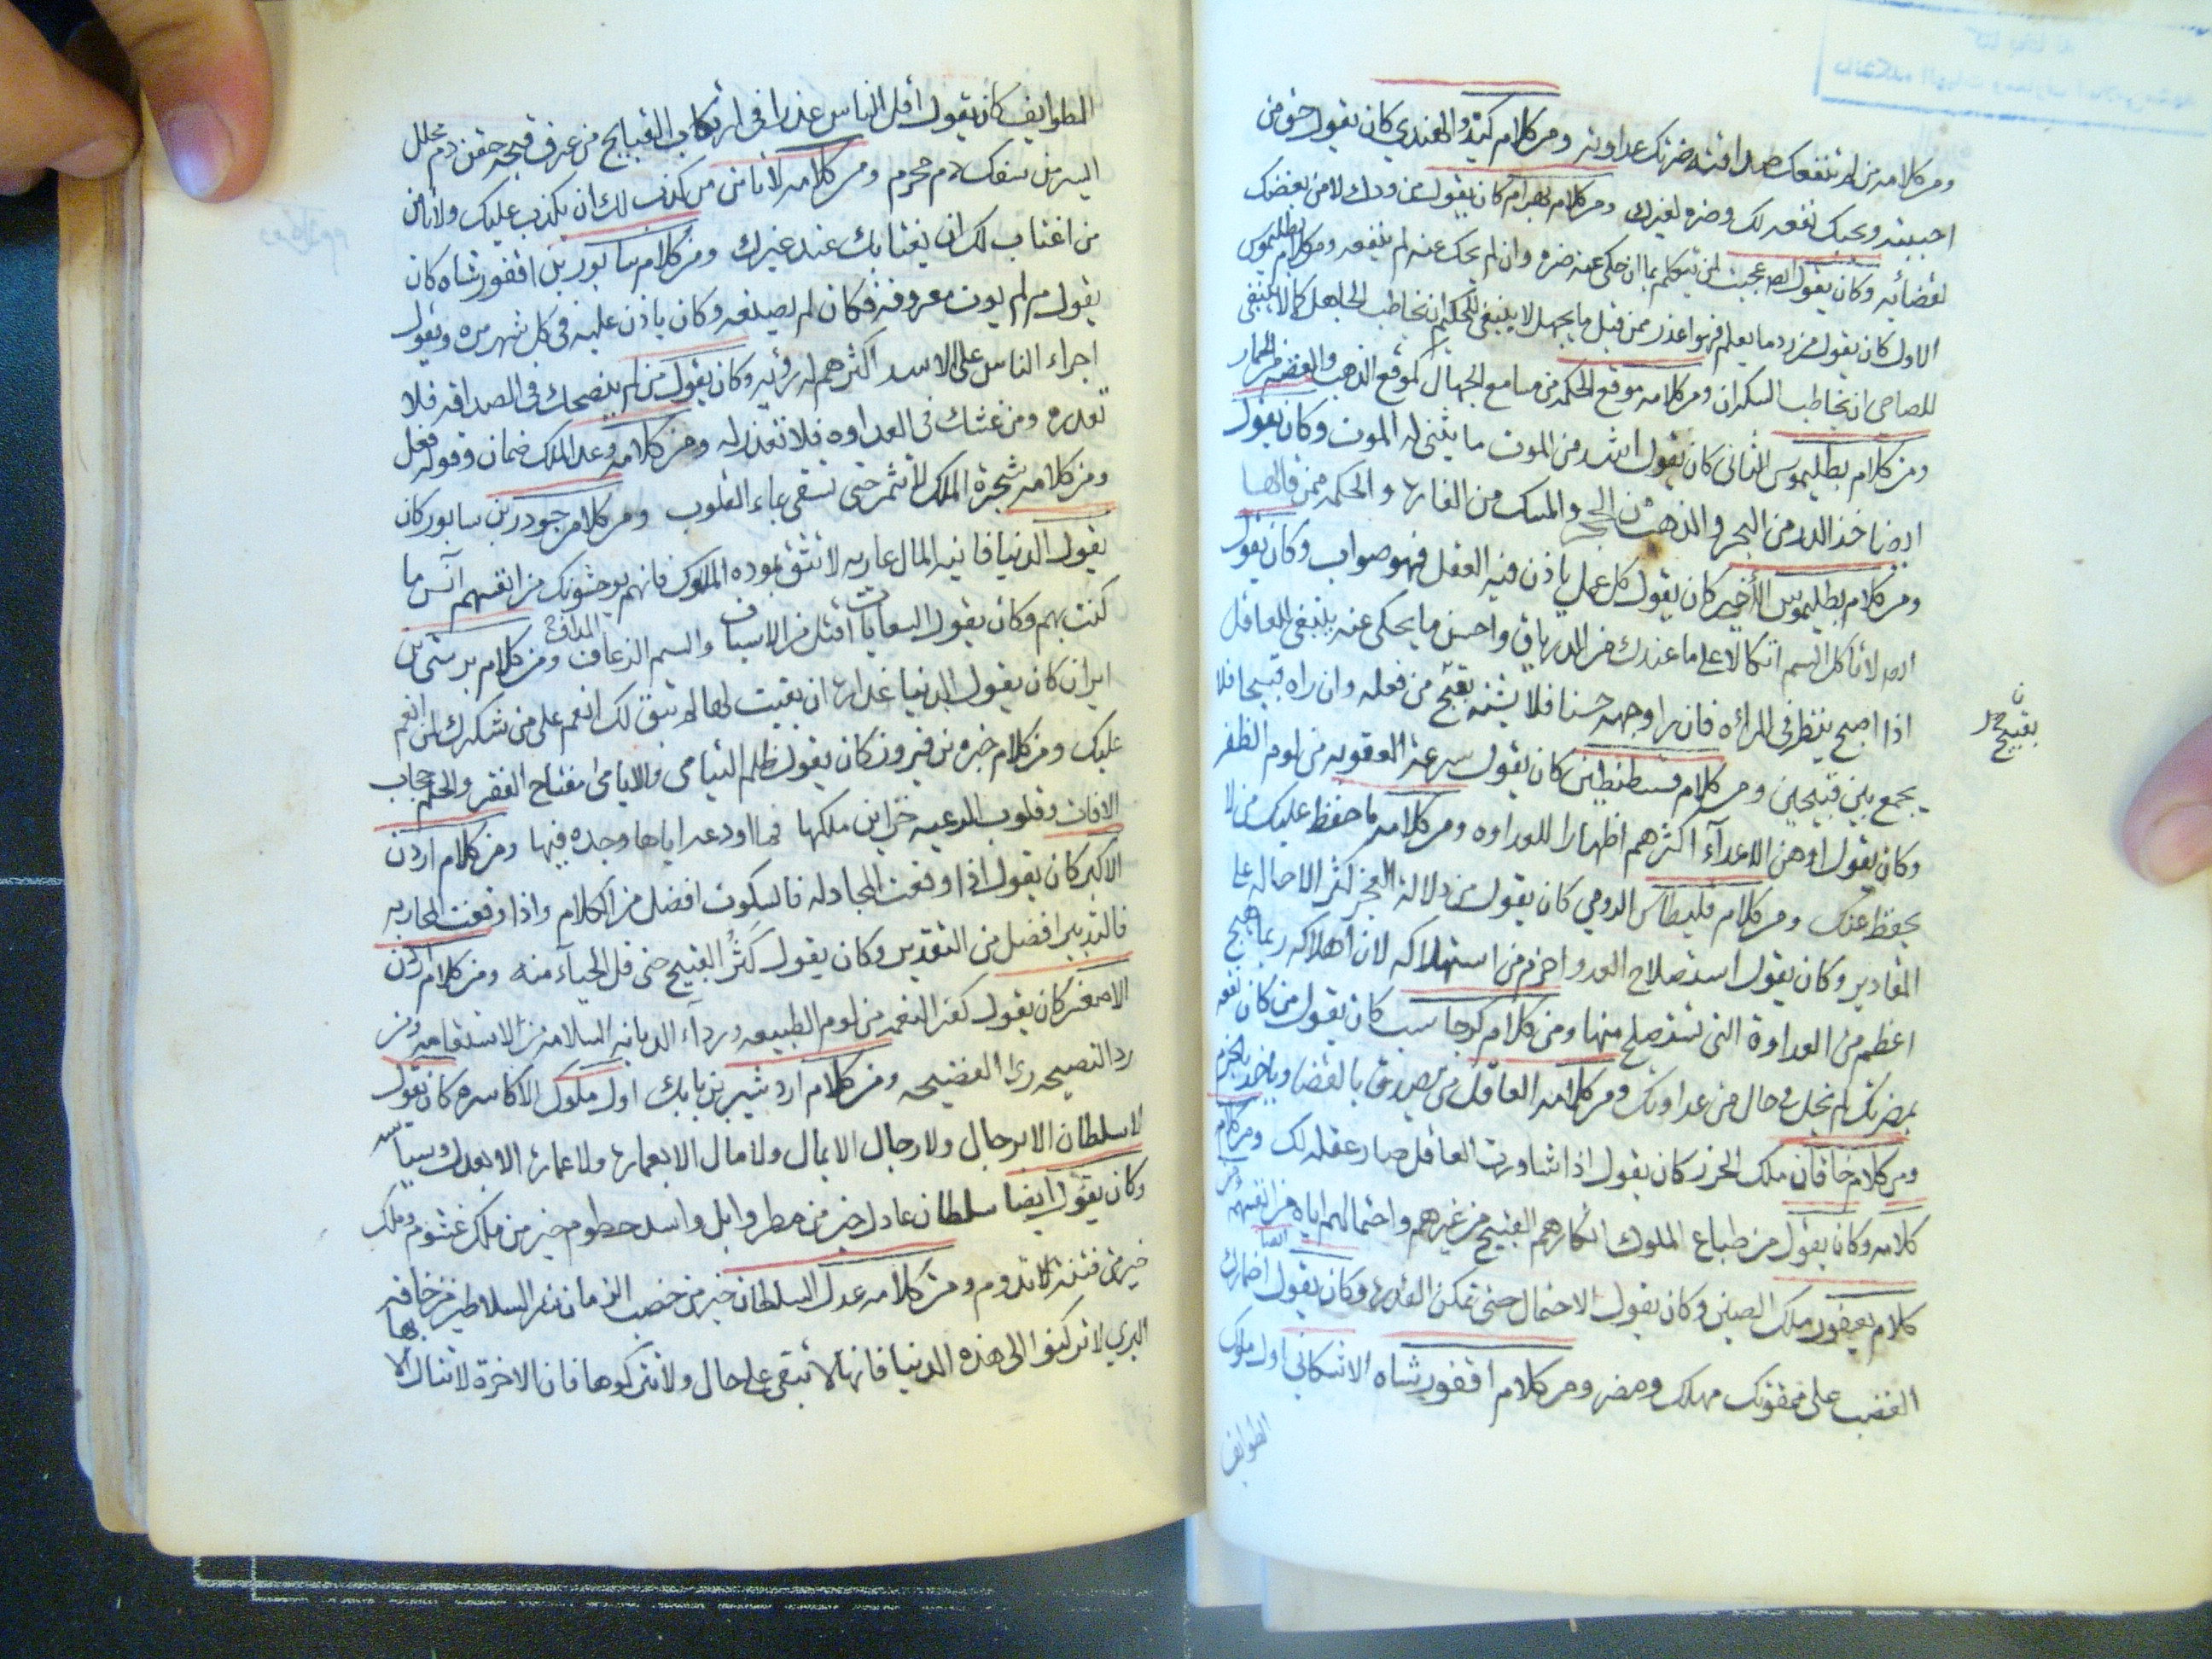 ومن كلامه من لم تنفعك صداقته ضرتك عداوته ومن كلام كند الهندي كان يقول حق من
احببته ويحبك نفعه لك وضره لغيرك ومن كلام بهرام كان يقول من ودك لامر بغضك
لقضائه وكان يقول ايضا عجبت لمن يتكلم بما ان حكى عنه ضره وان لم يحك عنه لم ينفعه ومن كلام بطليموس
الاول كان يقول من رد ما يعلم فهو اعذر ممن قبل ما يجهل لا ينبغي للحكيم ان يخاطب الجاهل كما لا ينبغي
للصاحى ان يخاطب السكران ومن كلامه موقع الحكمه من مسامع الجهال كموقع الذهب والفضه
ومن كلام بطليموس الثانى كان يقول اشد من الموت ما يتمنى له الموت وكان يقول
ايضا خذ الدر من البحر والذهب من الحجر والمسك من الفارة والحكمه ممن قالها
ومن كلام بطليموس الأخير كان يقول كل عمل ياذن فيه العقل فهو صواب وكان يقول
ايضا لا تاكل السم اتكالا على ما عندك من الدرياق واحسن ما يحكى عنه ينبغي للعاقل
اذا اصبح ينظر فى المراة فان راى وجهه حسنا فلا يشنه بقبح من فعله وان راه قبيحا فلا
يجمع بين قبيحين ومن كلام قسطنطين كان يقول سرعة العقوبه من لوم الظفر
وكان يقول اوهن الاعدآء اكثرهم اظهارا للعداوه ومن كلامه ما حفظ عليك من لا
يحفظ عنك ومن كلام فليطاس الرومي كان يقول من دلالة العجز كثر الاحاله على
المقادير وكان يقول استصلاح العدو احزم من استهلاكه لان اهلاكه ربما هيج
اعظم من العداوة التى تستصلح منها ومن كلام كرجاسب كان يقول من كان نفعه
بمضرتك لم يخل فى حال من عداوتك ومن كلامه العاقل من يصدق بالقضا وياخذ بالحزم
ومن كلام خاقان ملك الخزر كان يقول اذا شاورت العاقل صار عقله لك ومن كلام
كلامه وكان يقول من طباع الملوك انكارهم القبيح من غيرهم واحتمالهم اياه من انفسهم ومن
كلام يعفور ملك الصين وكان يقول الاحتمال حتى تمكن القدره وكان يقول ايضا اضمارك
الغضب على ممقوتك مهلك ومضر ومن كلام اقفور شاه الاشكانى اول ملوك
الطوايف
بقبيح
الطوايف كان يقول أقل الناس عذرا فى ارتكاب القبايح من عرف قبحه حقن دم محلل
ايسر من سفك دم محرم ومن كلامه لا تامن من كذب لك ان يكذب عليك ولا تامن
من اغتاب لك ان يغتابك عند غيرك ومن كلام سابور بن اقفور شاه كان
يقول من لم يوت معروفه فكان لم يصنعه وكان ياذن عليه فى كل شهر مره ويقول
اجراء الناس على الاسد اكثرهم له رؤيه وكان يقول من لم ينصحك فى الصداقه فلا
تعذره ومن غشك فى العداوه فلا تعذله ومن كلامه وعد الملك ضمان وقوله فعل
ومن كلامه شجرة الملك لا تثمر حتى تسقى بماء القلوب ومن كلام جودرز بن سابور كان
يقول الدنيا فانيه المال عاريه لا تثق بموده الملوك فانهم يوحشونك من انفسهم آنس ما
كنت بهم وكان يقول السعايات اقتل من الاسياف والسم الذعاف ومن كلام نرسى بن
ايران كان يقول الدنيا غداره ان بقيت لها لم تبق لك انعم على من شكرك لمن انعم
عليك ومن كلام خسره بن فيروز كان يقول ظلم اليتامى والايامى مفتاح الفقر والحلم حجاب
الافات وقلوب الرعيه خزاين ملكها فما اودعه اياها وجده فيها ومن كلام اردن
الاكبر كان يقول اذا وقعت المجادله فالسكوت افضل من الكلام واذا وقعت المحاربه
فالتدبير افضل من التقدير وكان يقول كثر القبيح حتى قل الحيآء منه ومن كلام اردن
الاصغر كان يقول كفر النعمه من لوم الطبيعه ورداء الديانه السلامه من الاستقامه ومن
رد النصيحه رى الفضيحه ومن كلام اردشير بن بابك اول ملوك الاكاسره كان يقول
لا سلطان الا برجال ولا رجال الا بمال ولا مال الا بعماره ولا عماره الا بعدل وسياسه
وكان يقول ايضا سلطان عادل خير من مطر وابل واسد حطوم خير من ملك غشوم وملك
خير من فتنة تدوم ومن كلامه عدل السلطان خير من خصب الزمان شر السلاطين من خافه
البرى لا تركنوا الى هذه الدنيا فانها لا تبقى على حال ولا تتركوها فان الاخرة لا تنال الا بها